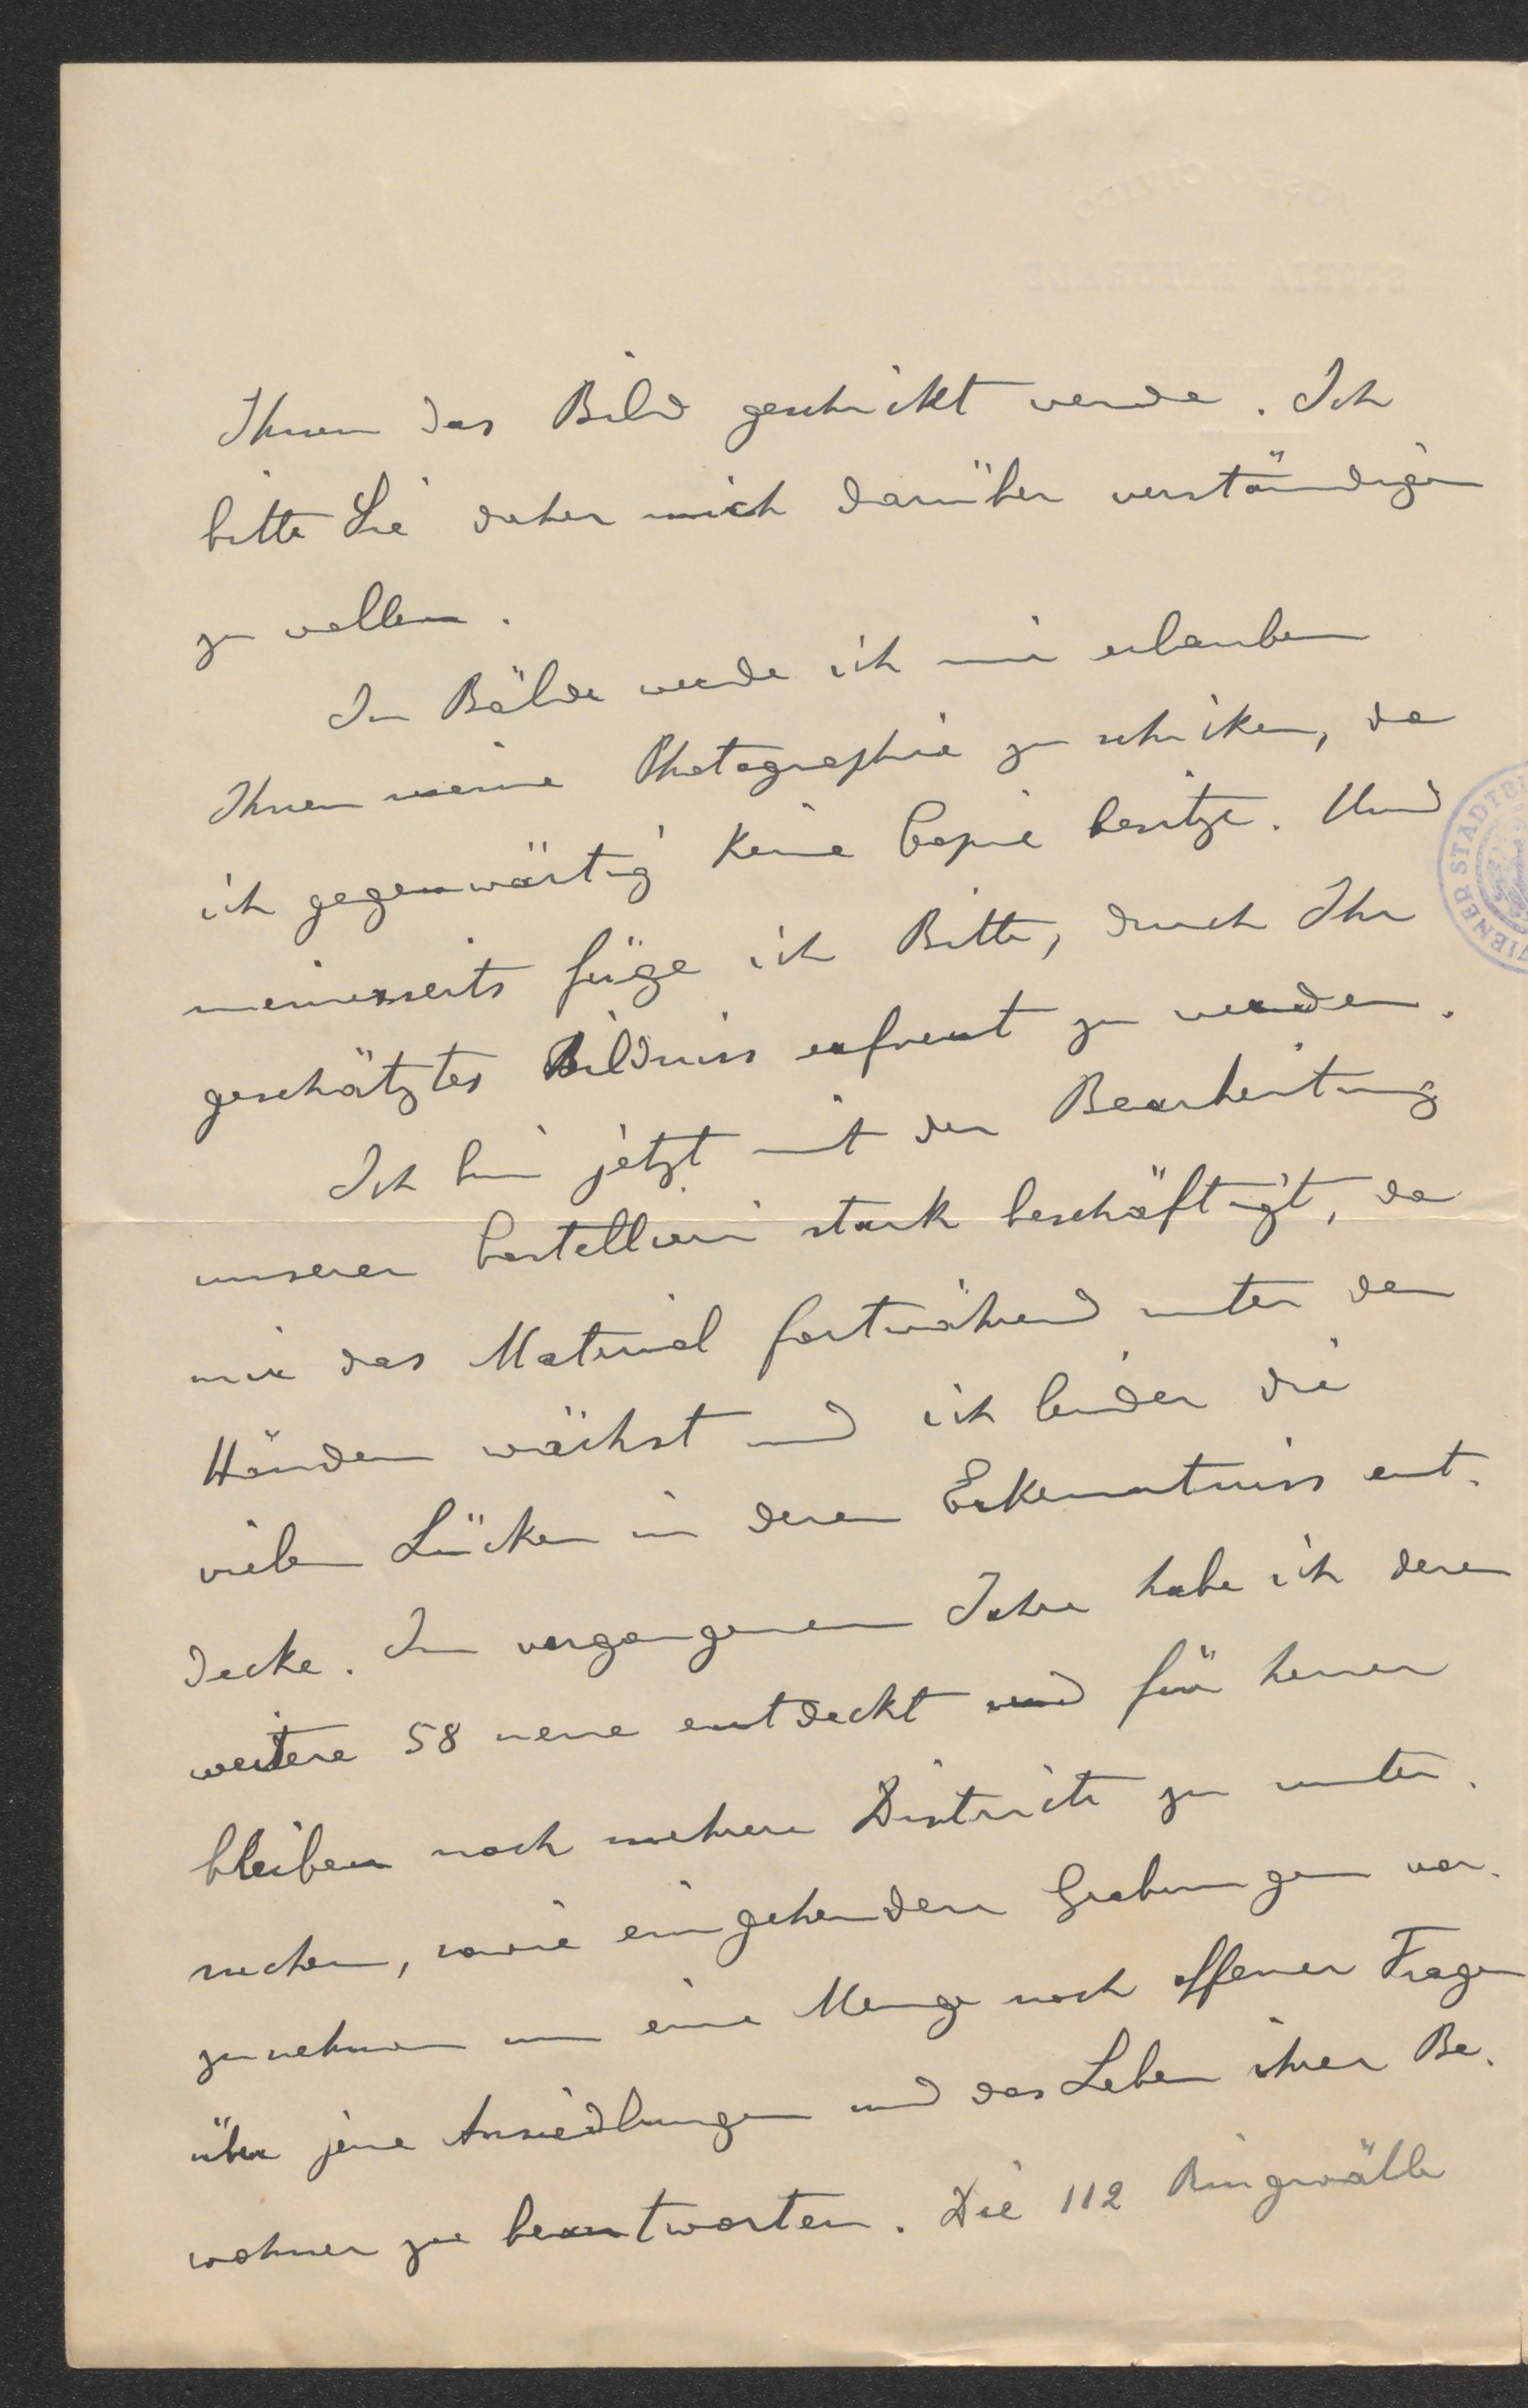 Ihnen das Bild geschickt werde. Ich
bitte Sie daher mich darüber verständigen
zu wollen.
In Bälde werde ich mir erlauben
Ihnen meine Photographie zu schicken, da
ich gegenwärtig keine Copie besitze. Und
meinerseits füge ich Bitte, durch Ihr
geschätztes Bildniss erfreut zu werden.
Ich bin jetzt mit der Bearbeitung
unserer Castellieri stark beschäftigt, da
mir das Material fortwährend unter den
Händen wächst und ich leider die
vielen Lücken in deren Erkenntniss ent-
decke. Im vergangenen Jahre habe ich deren
weitere 58 neue entdeckt und für heuer
bleiben noch mehrere Districte zu unter-
suchen, sowie eingehendere Grabungen vor-
zunehmen um eine Menge noch offener Fragen
über jene Ansiedlungen und das Leben ihrer Be-
wohner zu beantworten. Die 112 Ringwälle
WIENER STADTB